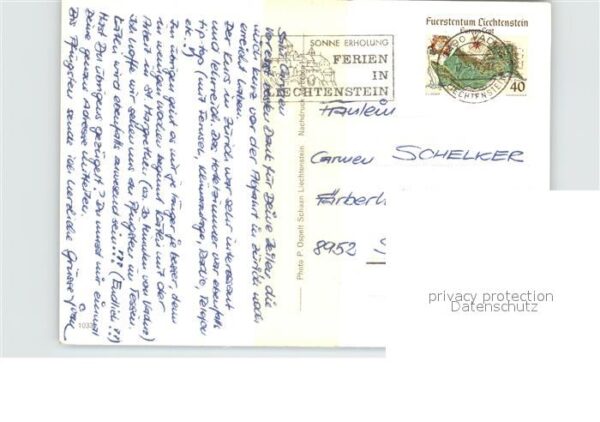 Salü Carmen
Vorerst besten Dank für Deine Zeilen die
mich kurz vor der Abfahrt in Zürich noch
erreicht haben.
Der Kurs in Zürich war sehr interessant
und lehrreich. Das Hotelzimmer war ebenfalls
tip top (mit Fernseh, Klimaanlage, Radio, Telefon
etc.)
Im übrigen geht es mir je länger je besser, denn
in wenigen Wochen beginnt mit der
Arbeit in St. Margrethen (ca. 30 Minuten von Vaduz)
Ich hoffe wir sehen uns an Pfingsten im Tessin.
wird ebenfalls anwesend sein!?? (Endlich!??)
Hast Du übrigens gezügelt? Du musst mir einmal
Deine genaue Adresse mitteilen.
Bis Pfingsten sende ich herzliche Grüsse
10337
Photo P. Ospelt Schaan Liechtenstein Nachdruck
SONNE ERHOLUNG
FERIEN
IN
LIECHTENSTEIN
VADUZ
LIECHTENSTEIN
Fuerstentum Liechtenstein
40
Fräulein
Carmen SCHELKER
Färberh
8952 S
privacy protection
Datenschutz